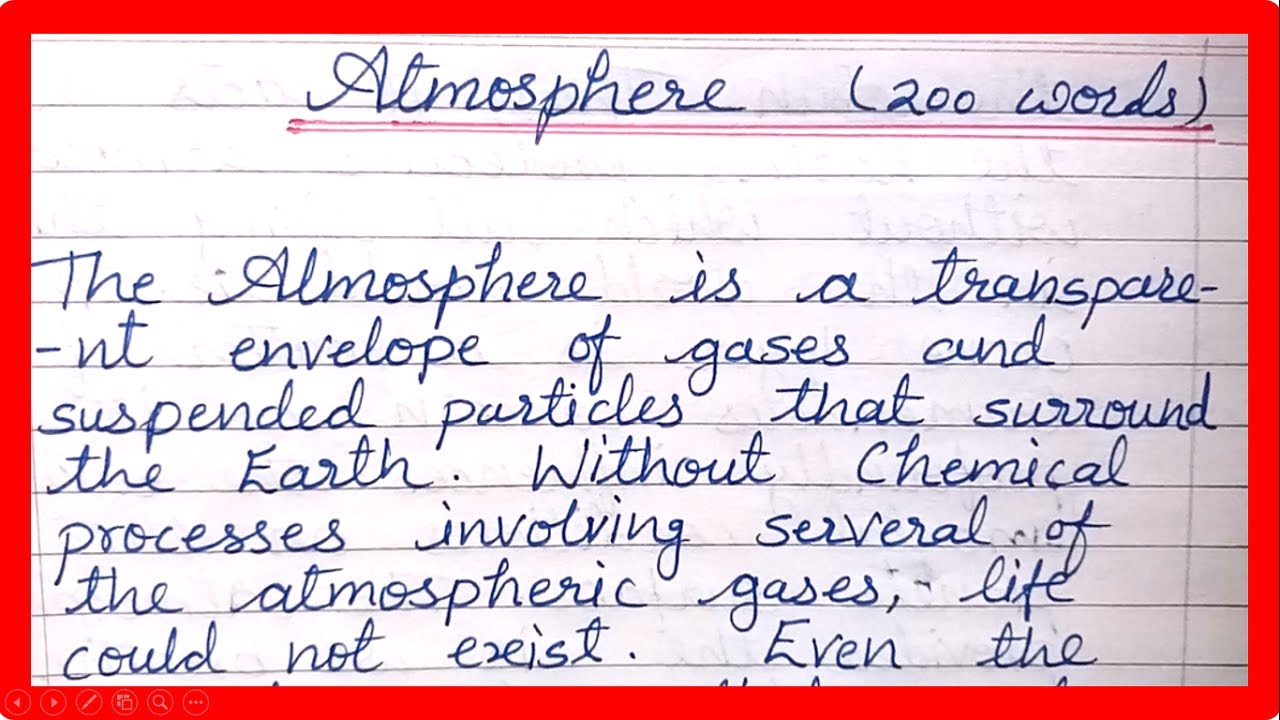 Atmosphere (200 words)
The Atmosphere is a transpare-
-nt envelope of gases and
suspended particles that surround
the Earth. Without Chemical
processes involving serveral of
the atmospheric gases, life
could not exeist. Even the